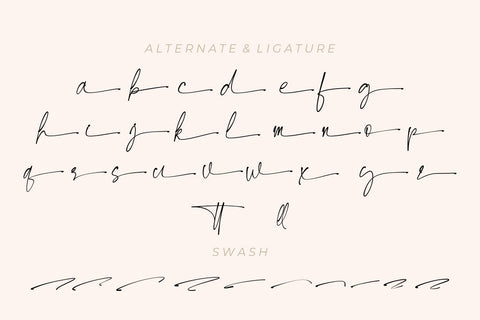 ALTERNATE & LIGATURE
a b c d e f g
h i j k l m n o p
q r s u v w x y z
tt ll
SWASH